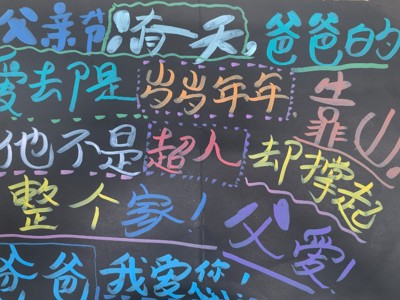 父亲节 天, 爸爸的
爱却是 岁岁年年 生
靠山!
他不是 超人 却撑起
整个家! 父爱!
爸爸 我爱您!